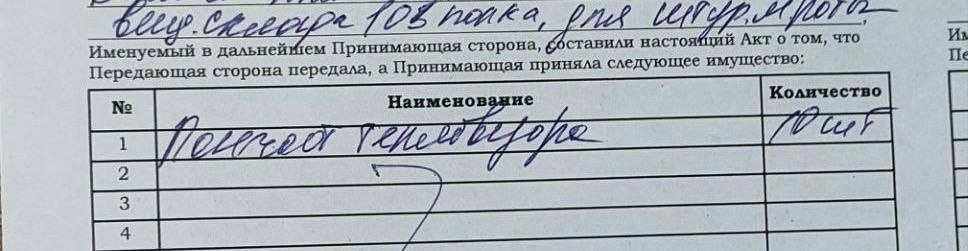 вещ. склада 103 полка, для штур. роты
Именуемый в дальнейшем Принимающая сторона, составили настоящий Акт о том, что
Передающая сторона передала, а Принимающая приняла следующее имущество:
№ Наименование Количество
1 Пончо от тепловизора 10 шт
2
3
4
Им
Пе